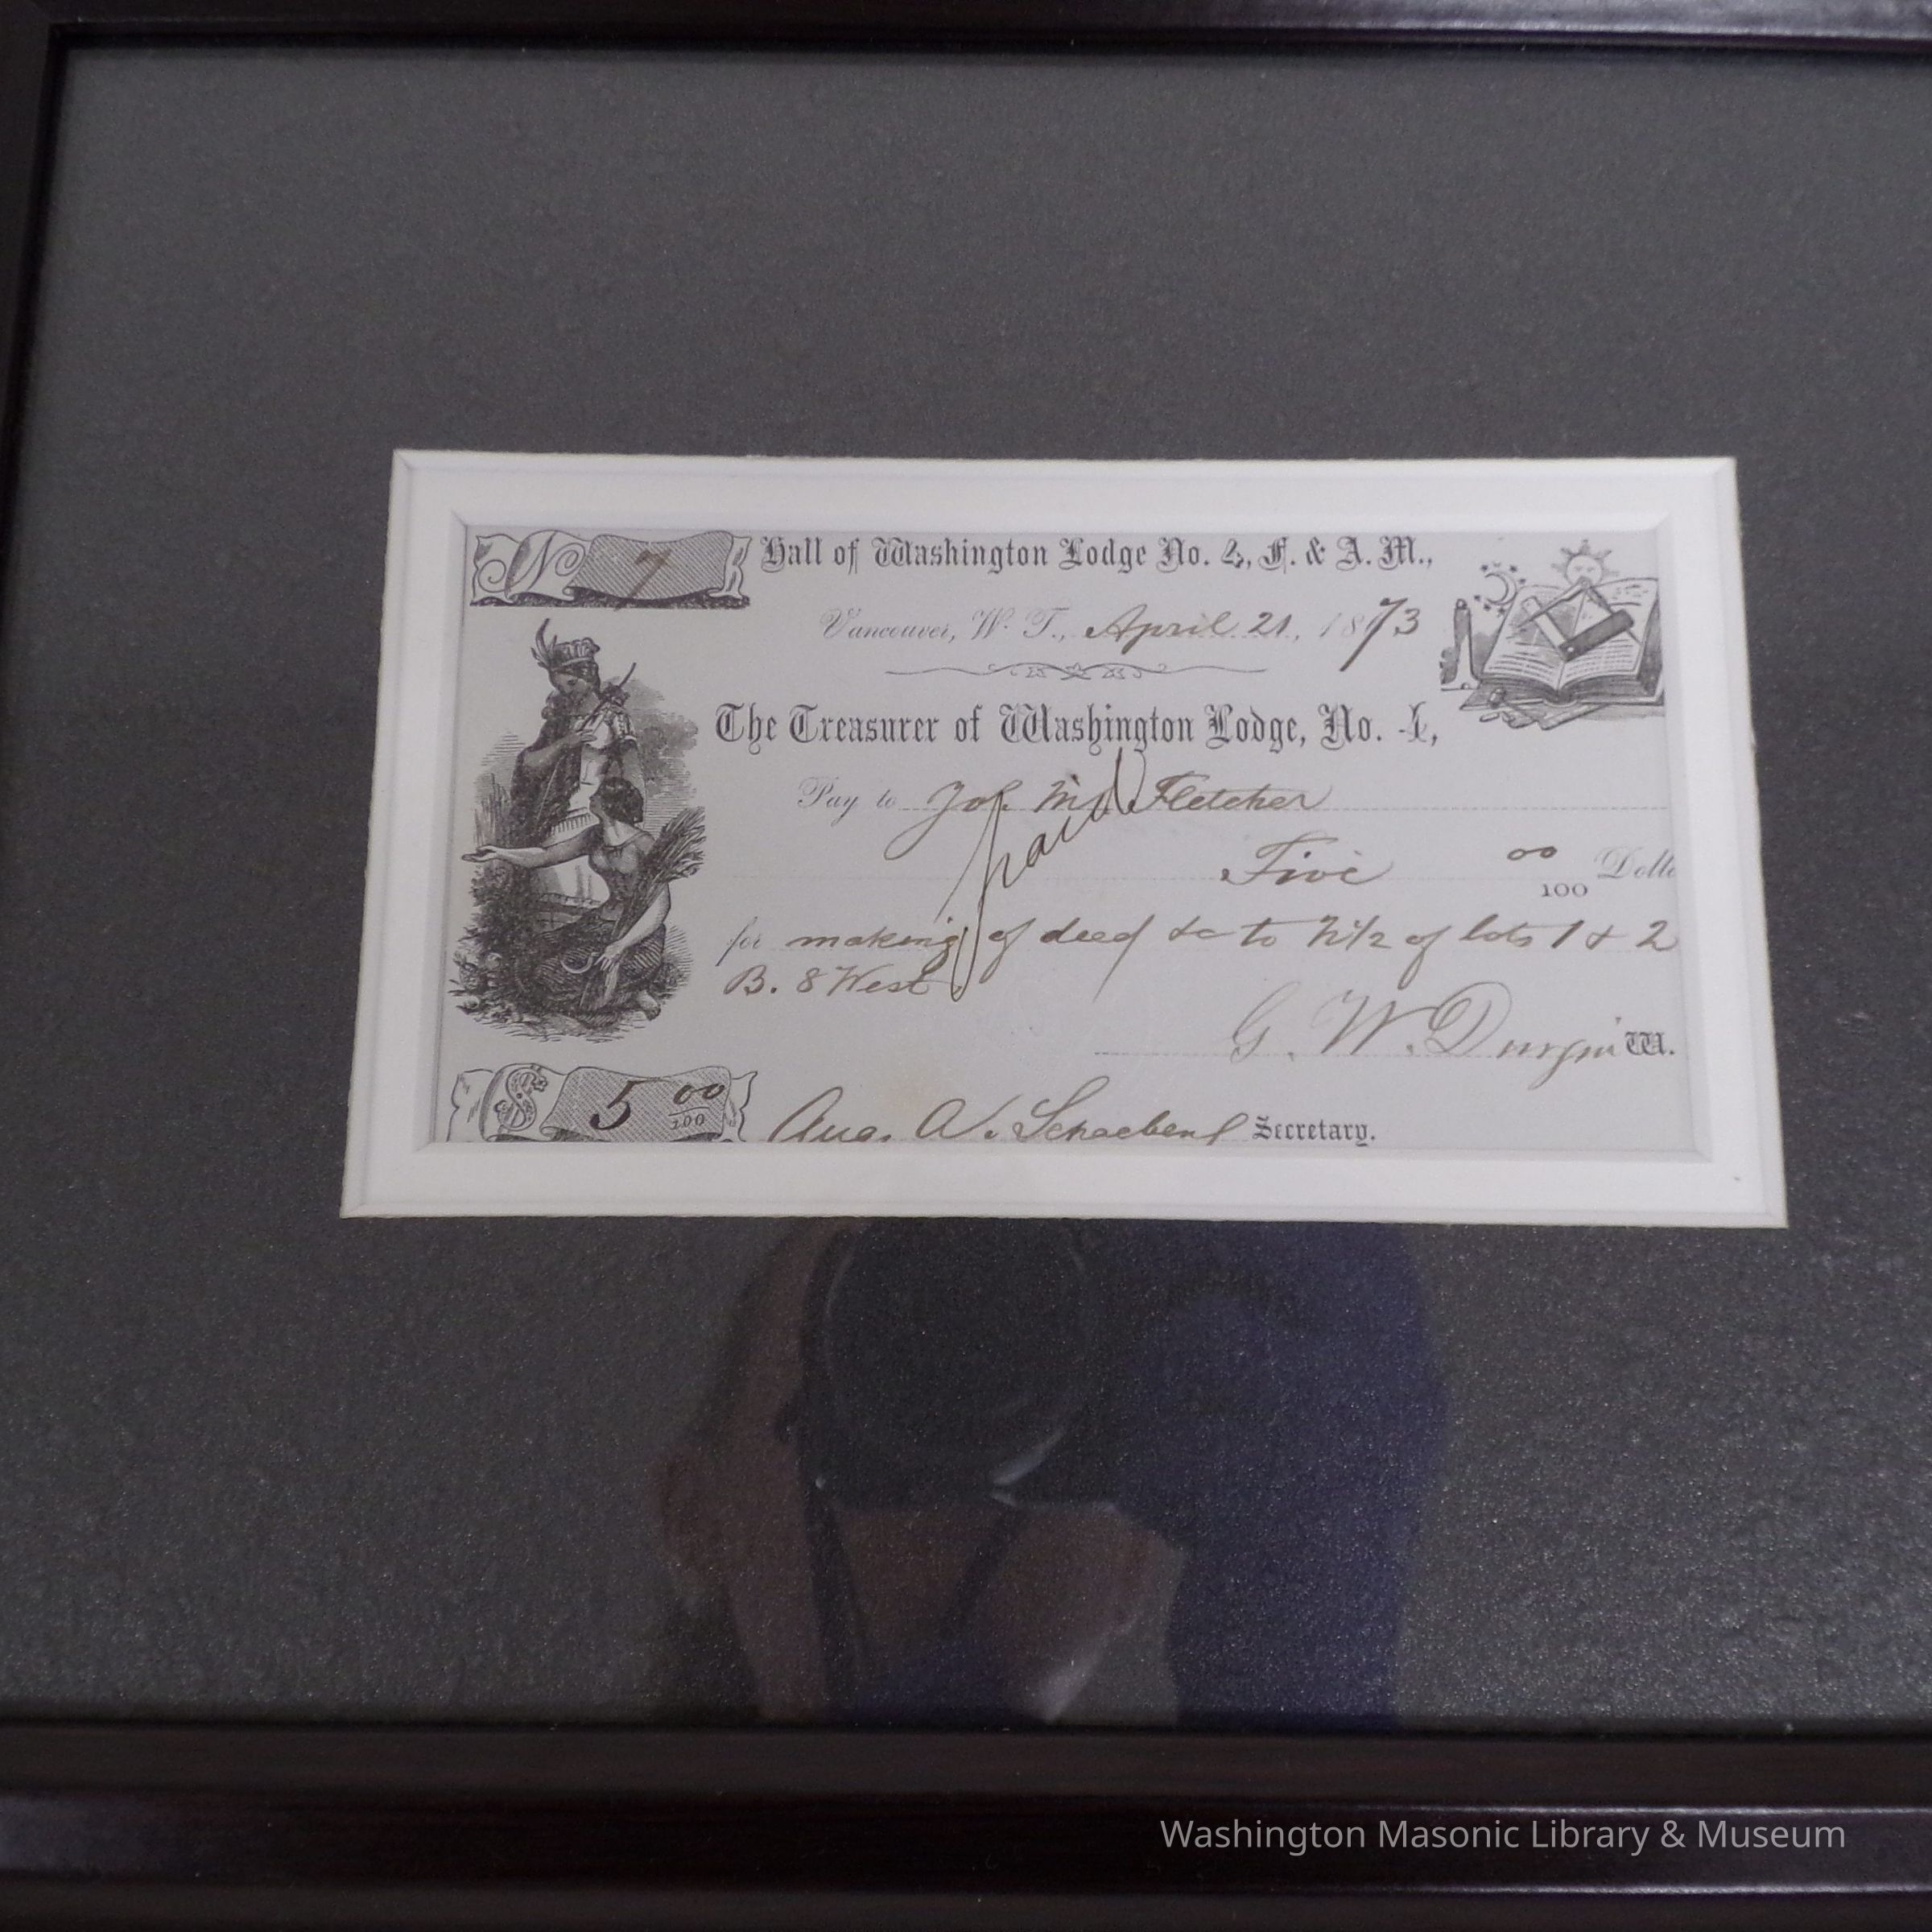 No 7
Hall of Washington Lodge No. 4, F. & A. M.,
Vancouver, W. T., April 21, 1873
The Treasurer of Washington Lodge, No. 4,
Pay to Jos. M. Fletcher
paid
Five 00/100 Dolla
for making of deed &c to N1/2 of lots 1 & 2
B. 8 West.
G. W. Durgin W.
$ 5 00/100
Aug. Secretary.
Washington Masonic Library & Museum